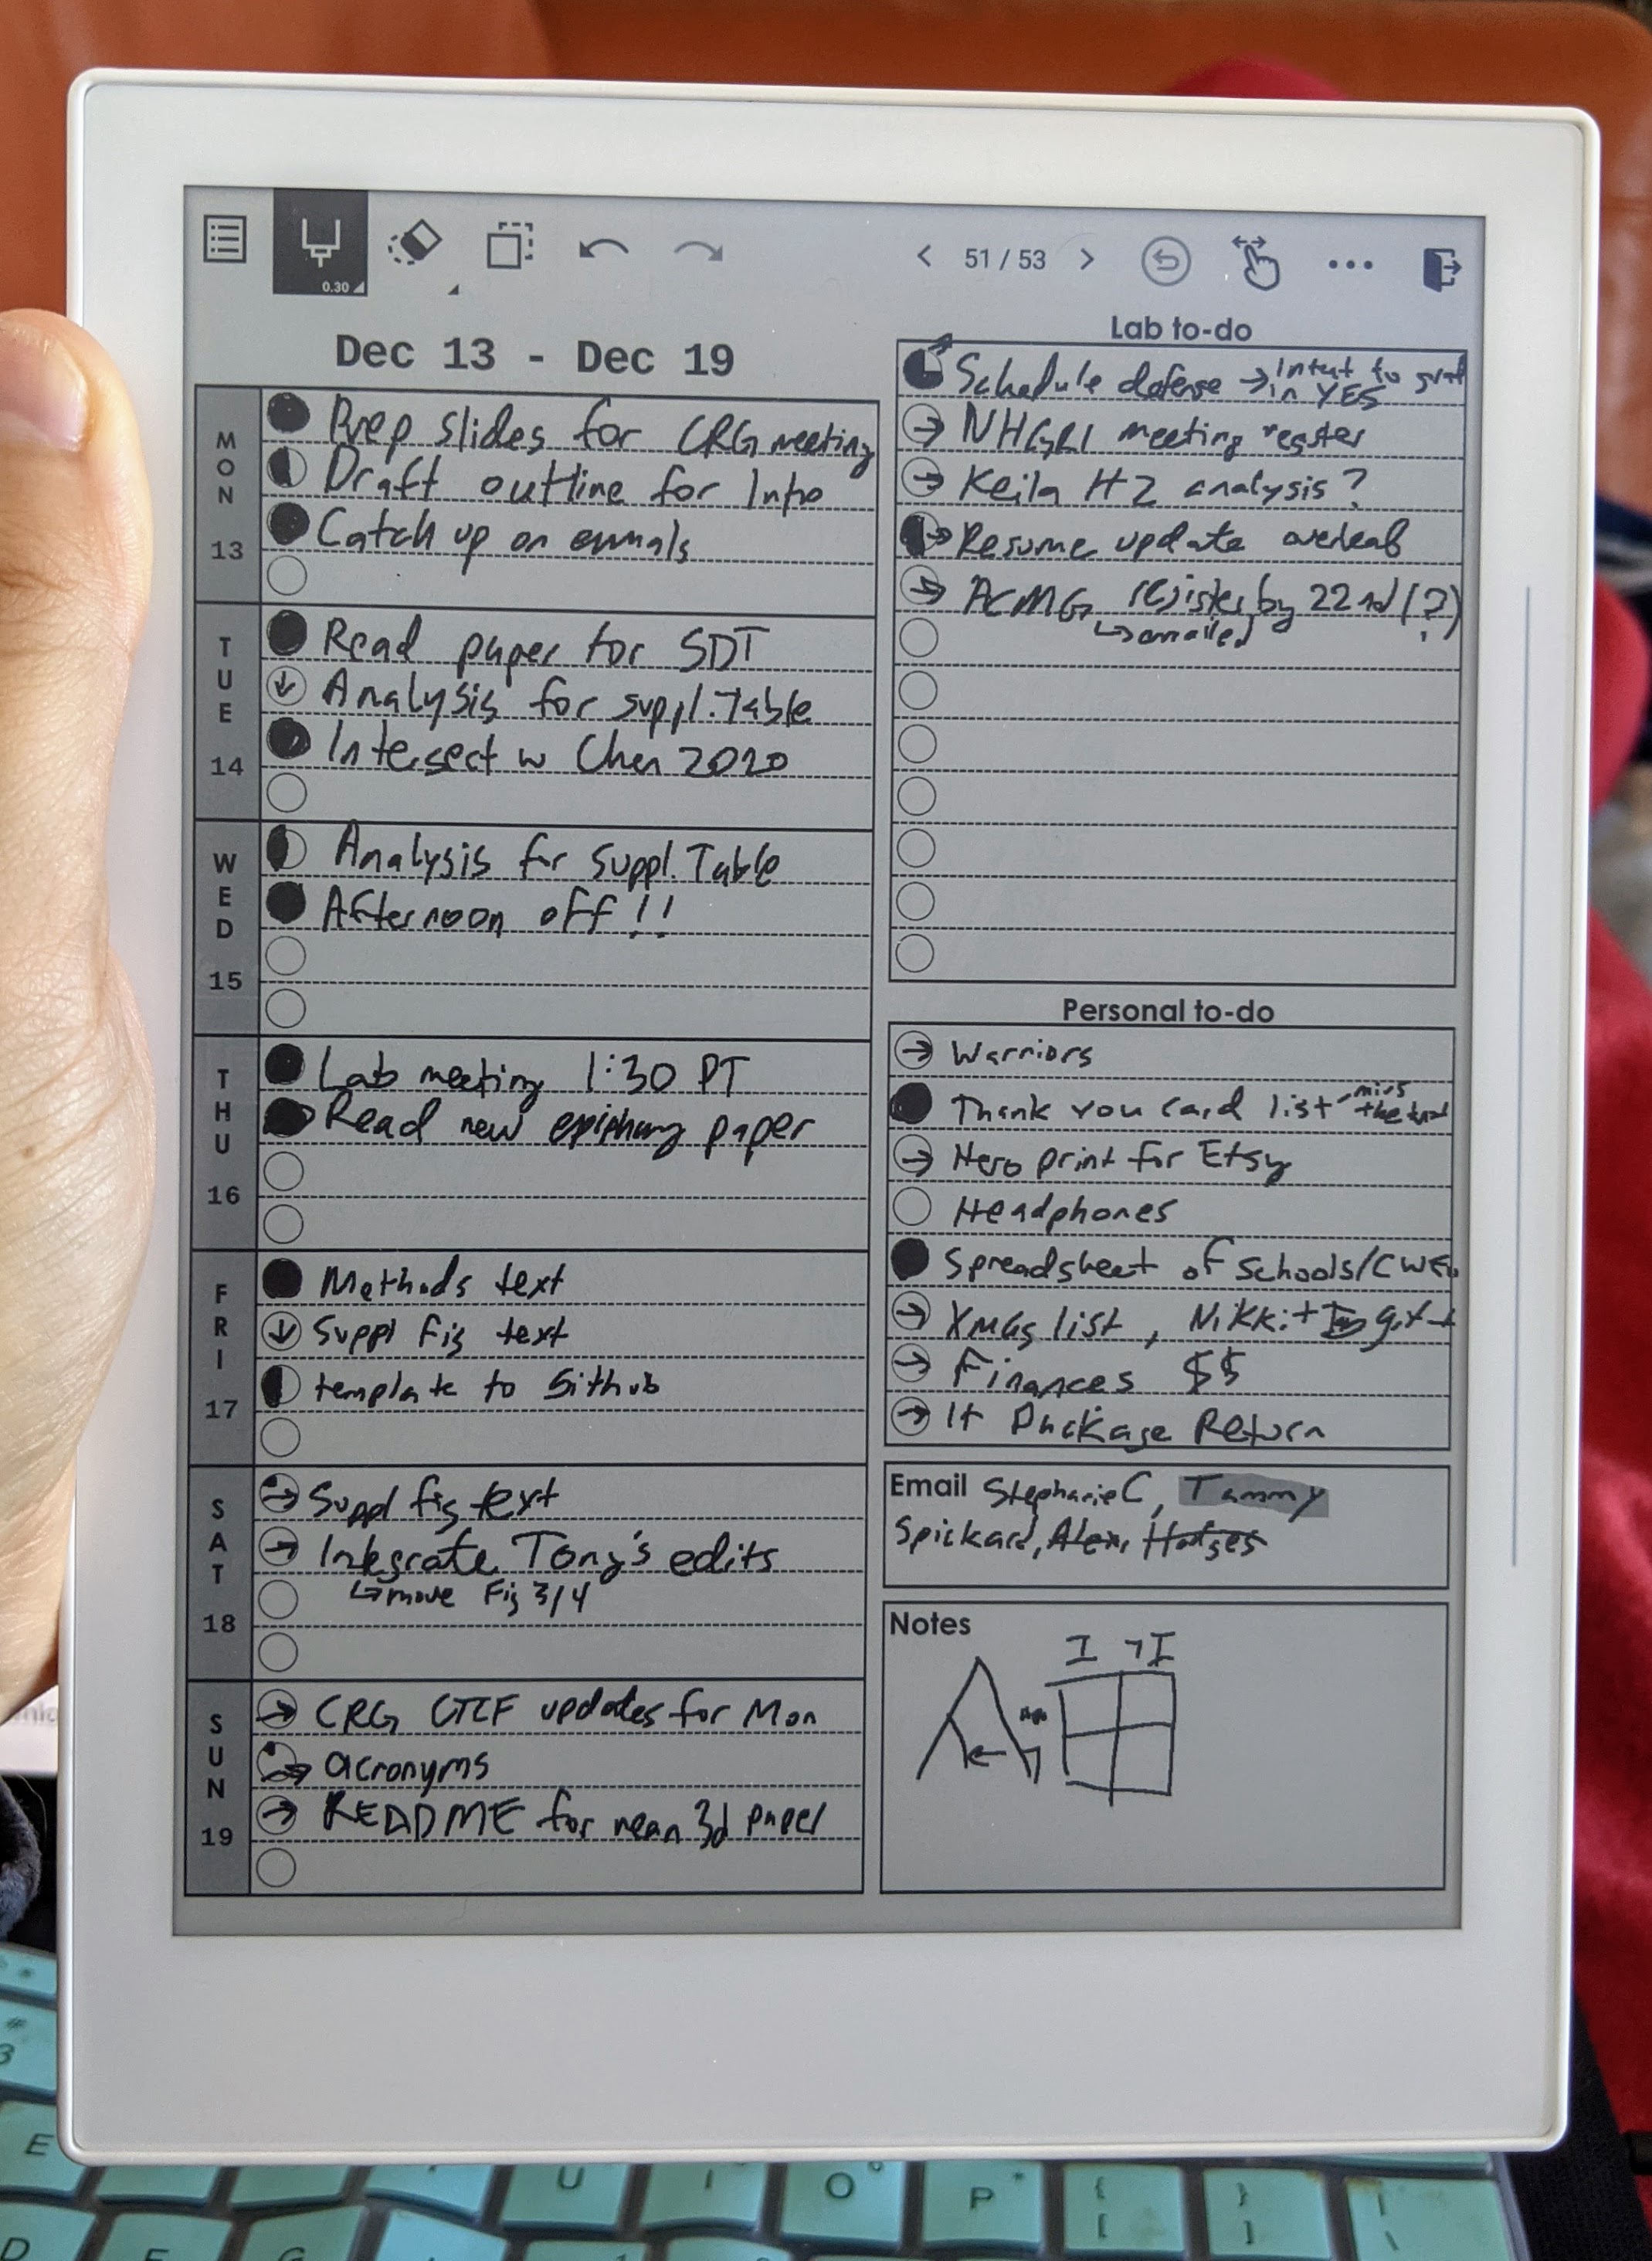 0.30
51 / 53
Dec 13 - Dec 19
MON
13
Prep slides for CRG meeting
Draft outline for Intro
Catch up on emails
TUE
14
Read paper for SDT
Analysis for suppl. Table
Intersect w Chen 2020
WED
15
Analysis for Suppl. Table
Afternoon off!!
THU
16
Lab meeting 1:30 PT
Read new epiphany paper
FRI
17
Methods text
Suppl fig text
template to Github
SAT
18
Suppl fig text
Integrate Tony's edits
↳ move Fig 3/4
SUN
19
CRG CTCF updates for Mon
acronyms
README for 3d paper
Lab to-do
Schedule defense → Intent to grad
in YES
NHGRI meeting register
Keila H2 analysis?
Resume update overleaf
ACMG register by 22nd (?)
↳ emailed
Personal to-do
Warriors
Thank you card list -
Hero print for Etsy
Headphones
Spreadsheet of Schools/
Xmas list, Nikki + gift
Finances $$
Package Return
Email Stephanie C, Tammy
Spickard, Alex, Hodges
Notes
I ¬I
E
U
I
O
P
{
[
}
]
|
\
#
3
D
F
G